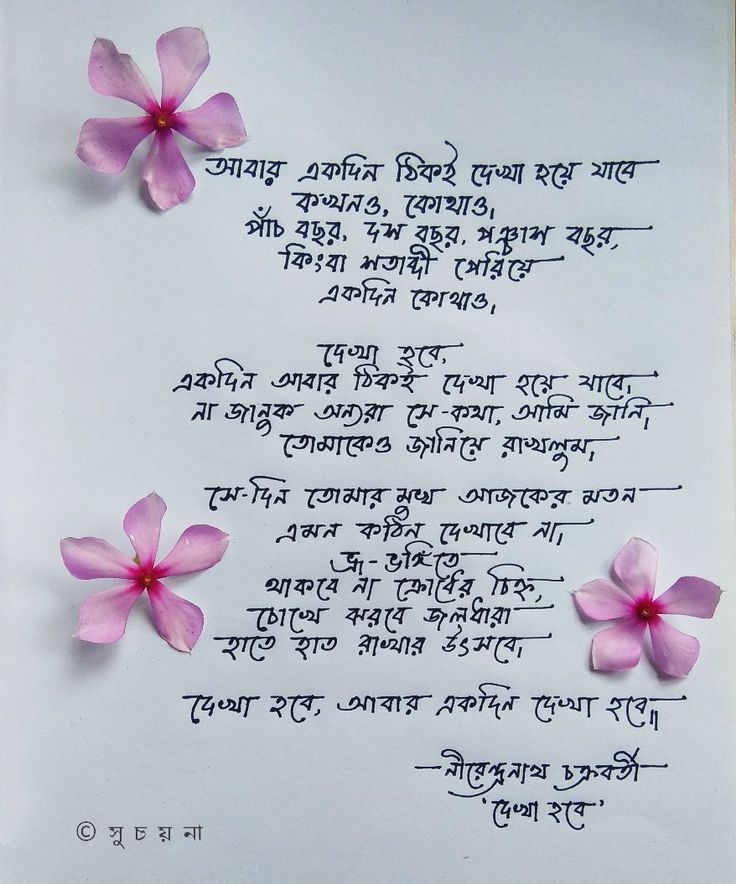 আবার একদিন ঠিকই দেখা হয়ে যাবে
কখনও, কোথাও।
পাঁচ বছর, দশ বছর, পঞ্চাশ বছর,
কিংবা শতাব্দী পেরিয়ে
একদিন কোথাও।
দেখা হবে,
একদিন আবার ঠিকই দেখা হয়ে যাবে।
না জানুক অন্যরা সে-কথা, আমি জানি।
তোমাকেও জানিয়ে রাখলুম।
সে-দিন তোমার মুখ আজকের মতন
এমন কঠিন দেখাবে না।
ভ্রূ-ভঙ্গিতে
থাকবে না ক্রোধের চিহ্ন,
চোখে ঝরবে জলধারা
হাতে হাত রাখার উৎসবে।
দেখা হবে, আবার একদিন দেখা হবে॥
—নীরেন্দ্রনাথ চক্রবর্তী
'দেখা হবে'
© সুচয়না